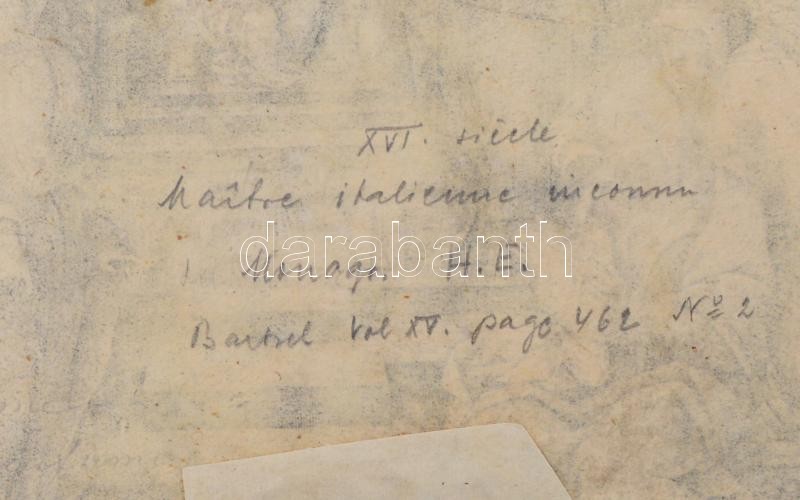 XVI. siècle
Maître italienne inconnu
darabanth
H. E.
Bartsch Vol XV. page 462 № 2